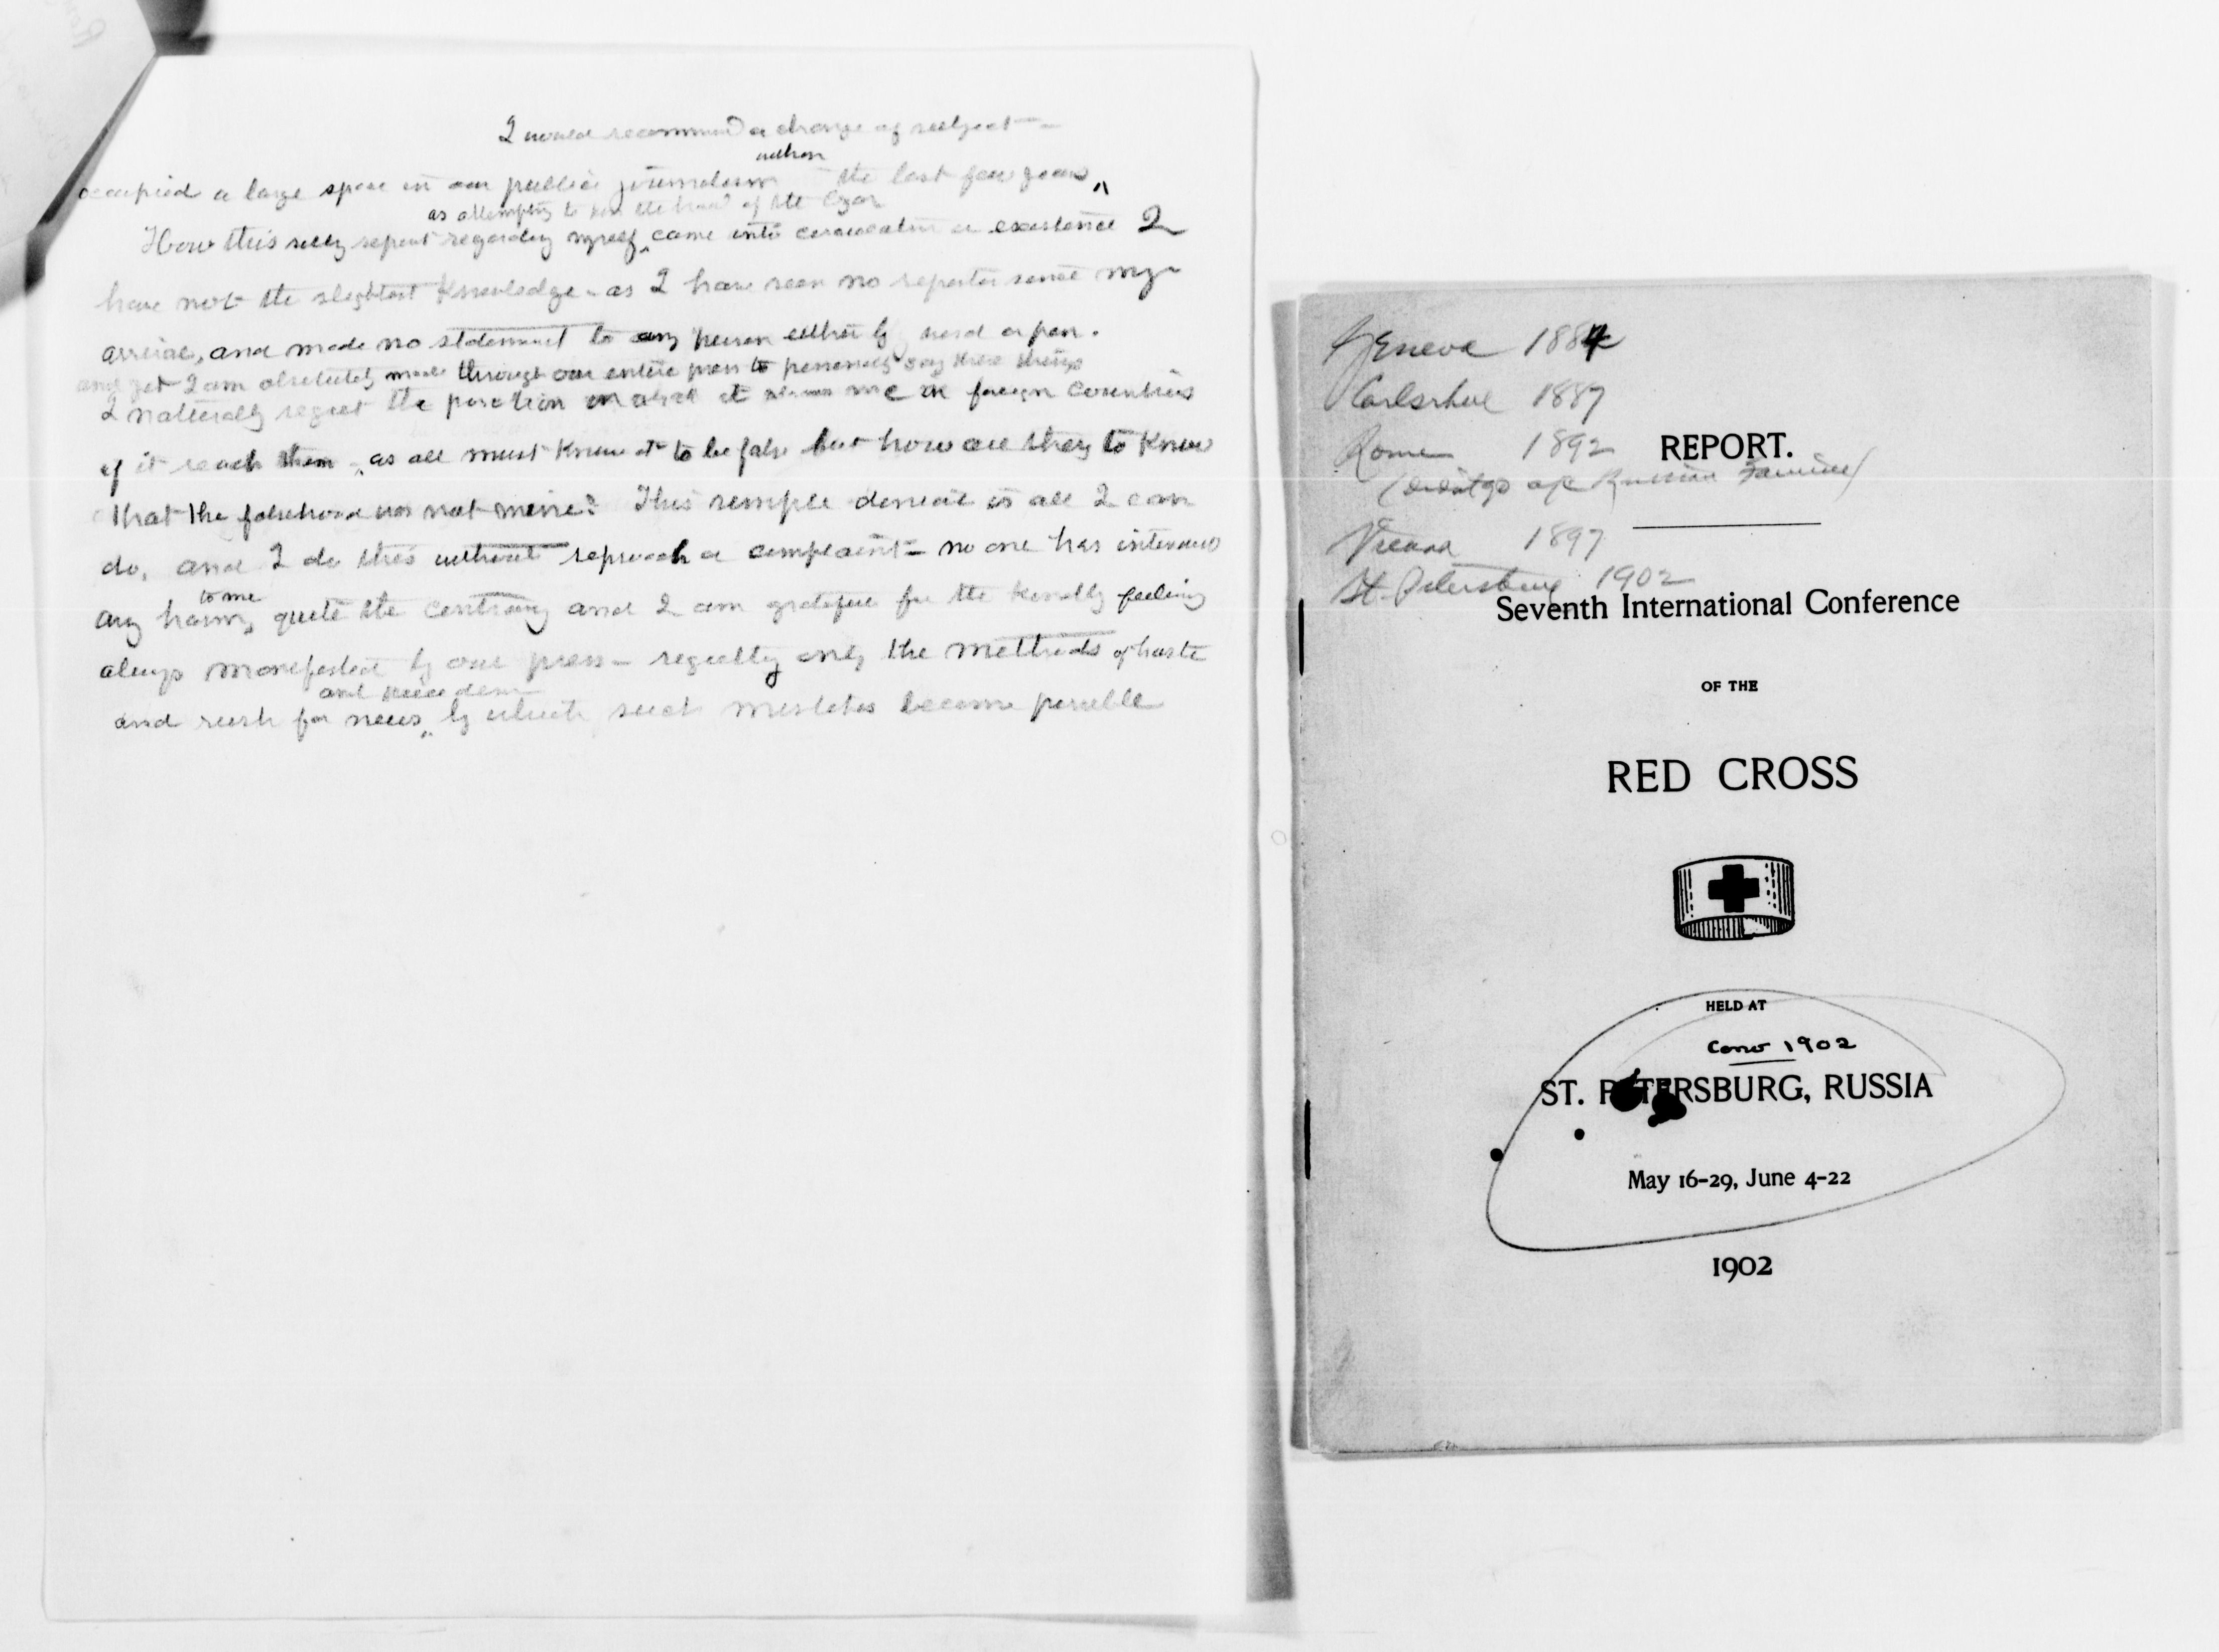 I would recommend a change of subject -
within
occupied a large space in our public journalism the last few years
as attempting to kiss the hand of the Czar
How this silly report regarding myself came into circulation or existence I
have not the slightest knowledge - as I have seen no reporter since my
arrival, and made no statement to any person either by word or pen.
and yet I am absolutely made through our entire press to personally say these things
I naturally regret the position in which it places me in foreign countries
if it reach them, as all must know it to be false but how are they to know
that the falsehood was not mine? This simple denial is all I can
do, and I do this without reproach or complaint - no one has intended
to me
any harm, quite the contrary and I am grateful for the kindly feeling
always manifested by our press - regretting only the methods of haste
and
and rush for news, by which such mistakes become possible
Geneva 1884
Carlsrhue 1887
Rome 1892
(did not go a/c Russian Famine)
Vienna 1897
St. Petersburg 1902
REPORT.
Seventh International Conference
OF THE
RED CROSS
HELD AT
Conv 1902
ST. PETERSBURG, RUSSIA
May 16-29, June 4-22
1902